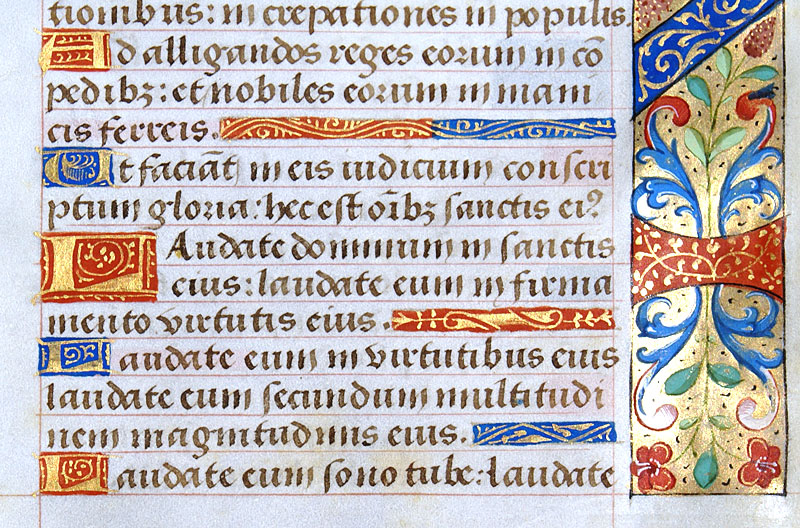 tionibus: in crepationes in populis.
Ad alligandos reges eorum in cō
pedibꝫ: et nobiles eorum in mani
cis ferreis.
Ut faciāt in eis iudicium conscri
ptum gloria: hec est oībꝫ sanctis ei⁹.
LAudate dominum in sanctis
eius: laudate eum in firma
mento virtutis eius.
Laudate eum in virtutibus eius
laudate eum secundum multitudi
nem magnitudinis eius.
Laudate eum sono tube: laudate